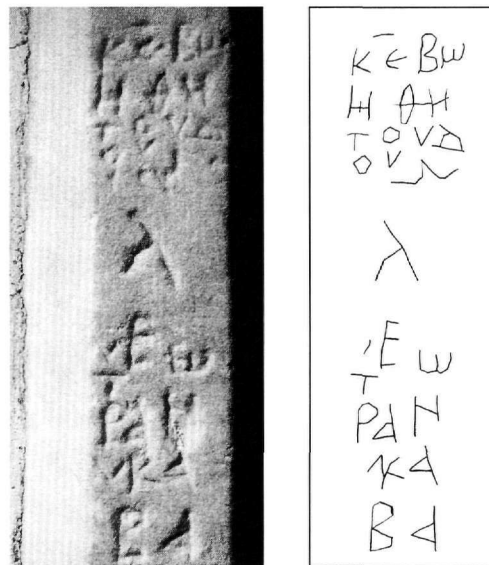 ΚΕ̅Βω
ΗΘΗ
ΤΟVΔ
ΟV
λ
Εω
Τ
ΡΑΝ
ΚΑ
ΒΑ